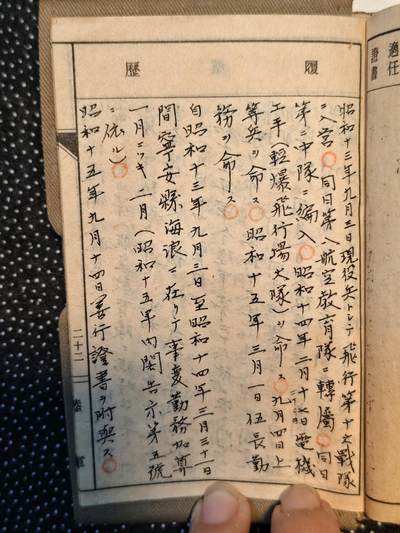 適任
證書
履歴
昭和十三年九月三日現役兵トシテ飛行第十六戰隊
ニ入營同日第八航空教育隊ニ轉屬同日
第二中隊ニ編入昭和十四年二月十六日電機
工手(輕爆飛行場大隊)ヲ命ス九月四日上
等兵ヲ命ス昭和十五年三月一日伍長勤
務ヲ命ス
自昭和十三年九月三日至昭和十四年三月三十一日
間寧安縣海浪ニ在リテ事変勤務加算
一月ニツキ二月(昭和十五年內閣告示第五號
ニ依ル)
昭和十五年九月十四日善行證書ヲ附與ス
二十二